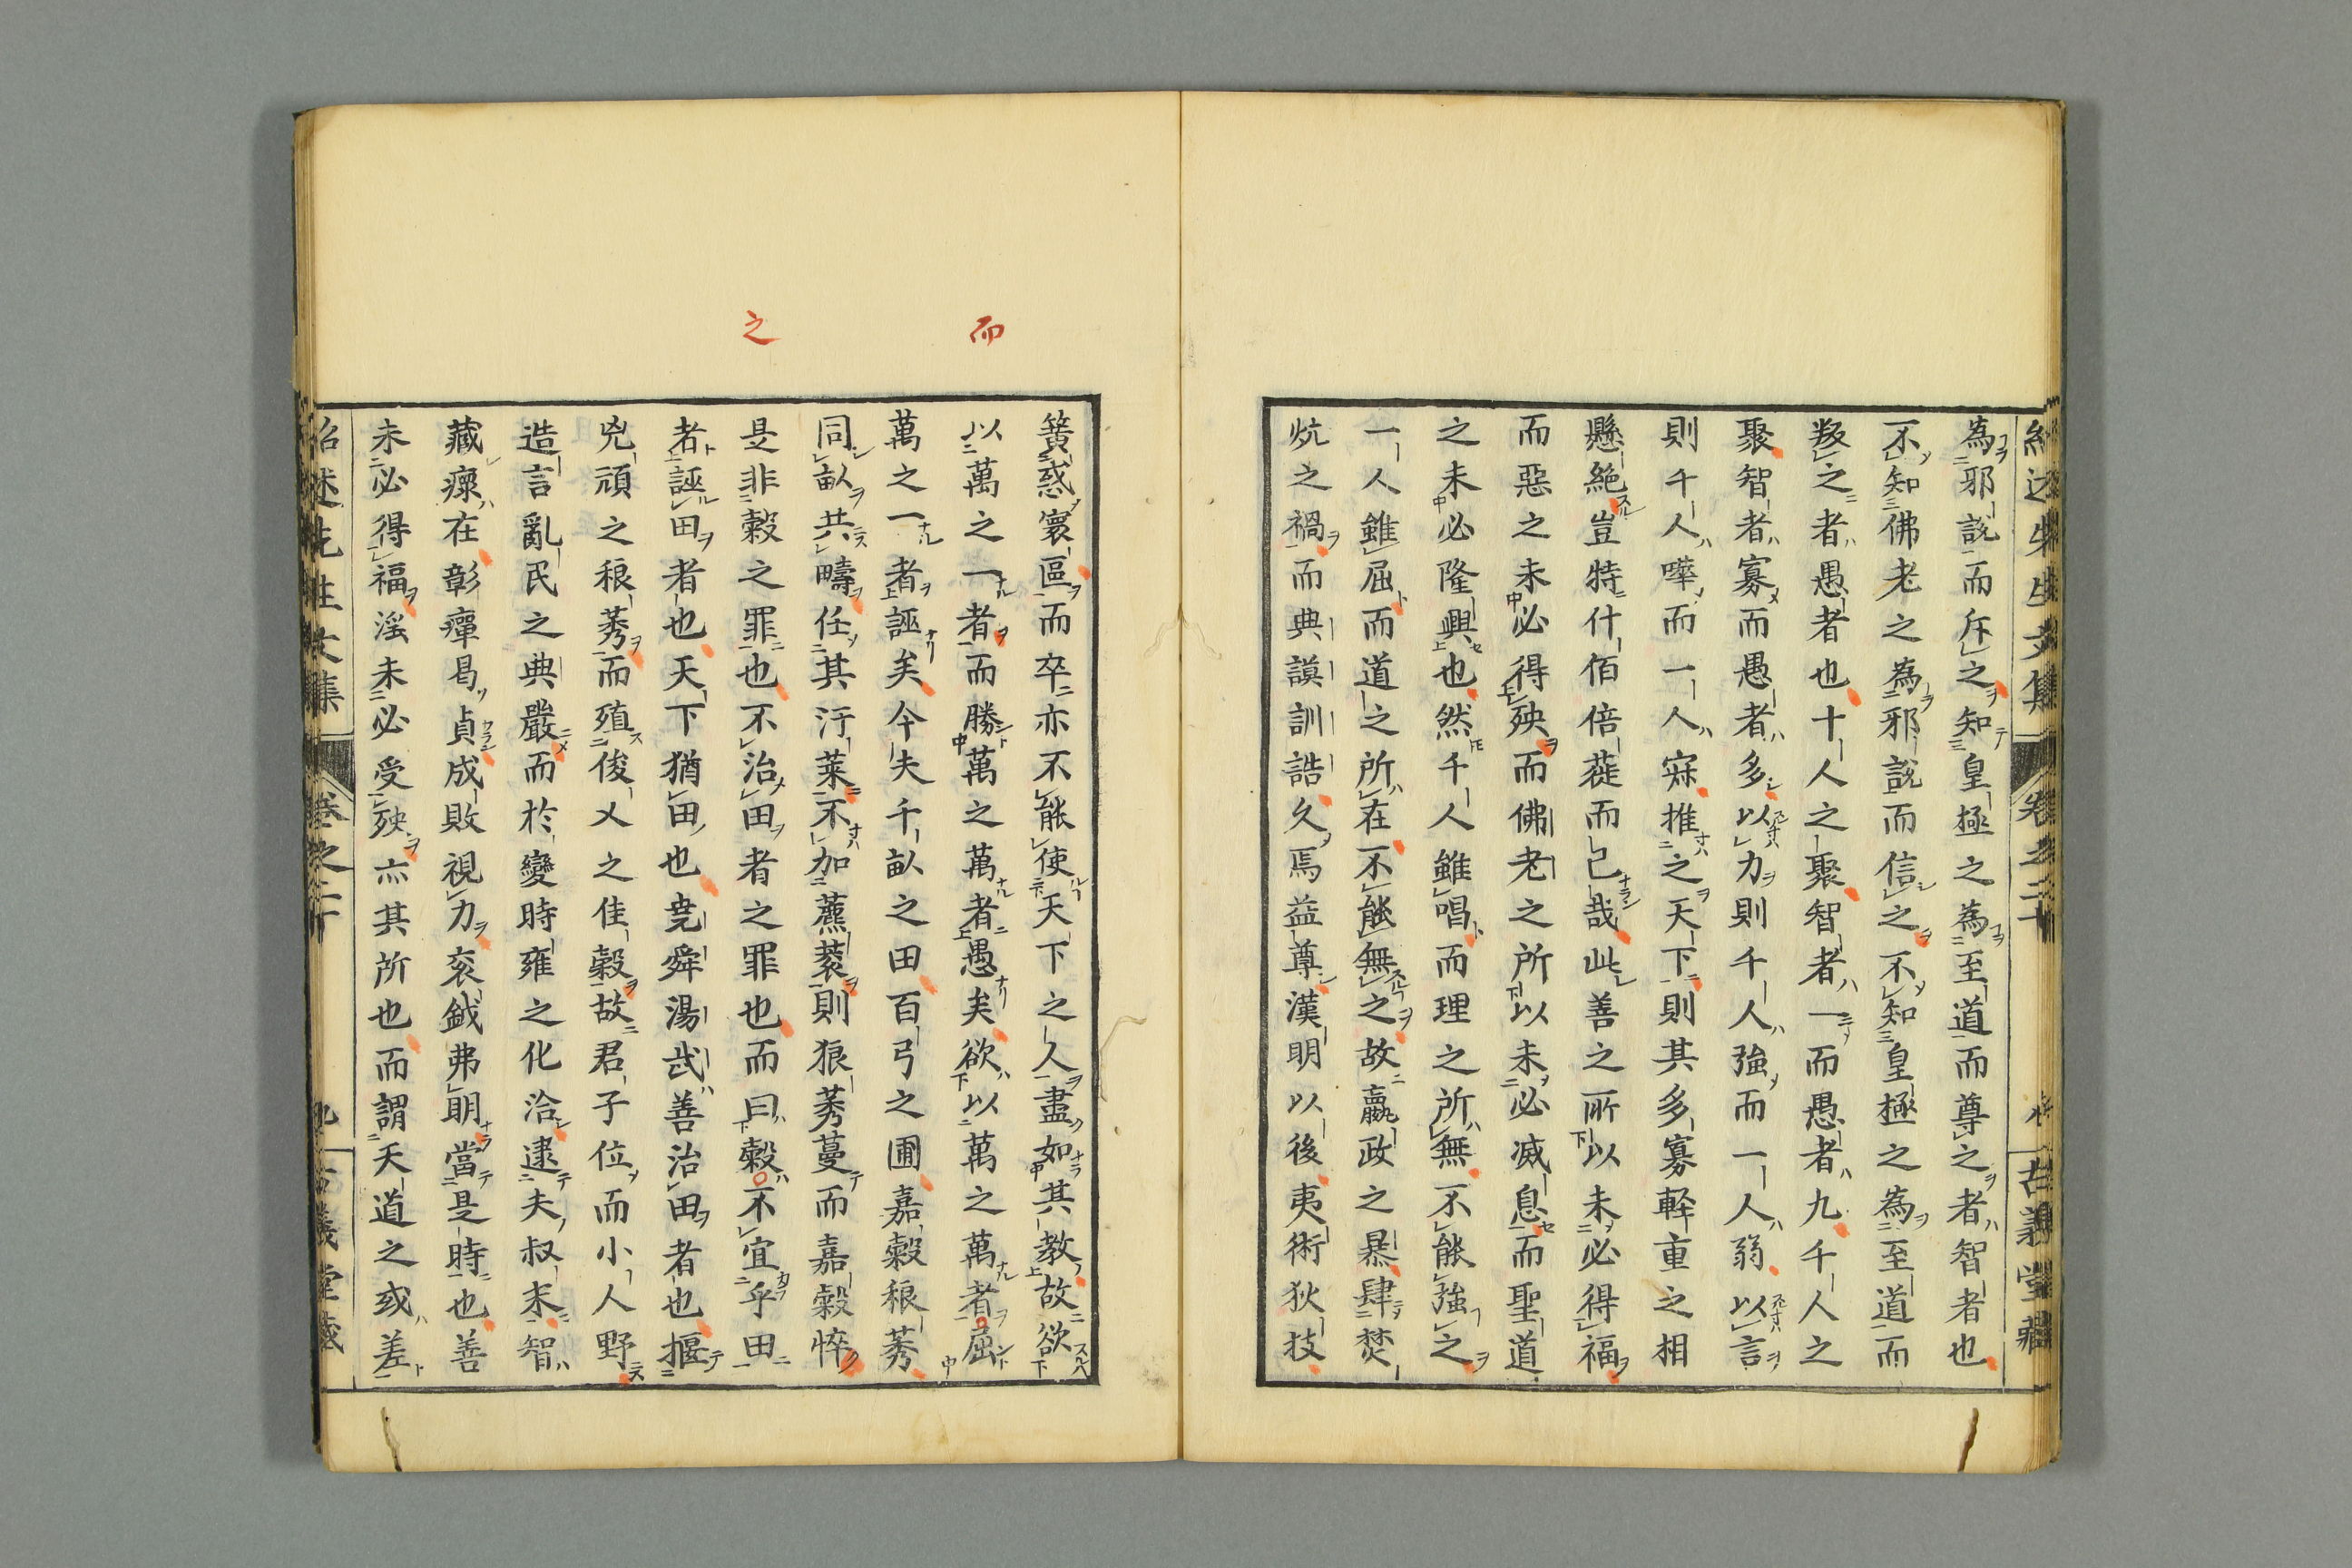 為邪說而斥之知皇極之為至道而尊之者智者也
不知佛老之為邪說而信之不知皇極之為至道而
叛之者愚者也十人之聚智者一而愚者九千人之
聚智者寡而愚者多以力則千人強而一人弱以言
則千人嘩而一人寂推之天下則其多寡輕重之相
懸絕豈特什佰倍蓰而已哉此善之所以未必得福
而惡之未必得殃而佛老之所以未必滅息而聖道
之未必隆興也然千人雖唱而理之所無不能強之
一人雖屈而道之所在不能無之故嬴政之暴肆焚
炕之禍而典謨訓誥久焉益尊漢明以後夷術狄技
簧惑寰區而卒亦不能使天下之人盡如其教故欲
以萬之一者而勝萬之萬者愚矣欲以萬之萬者屈
萬之一者誣矣今夫千畝之田百弓之圃嘉穀稂莠
同畝共疇任其汙萊不加藨蔉則狼莠蔓而嘉穀悴
是非穀之罪也不治田者之罪也而曰穀不宜乎田
者誣田者也天下猶田也堯舜湯武善治田者也揠
兇頑之稂莠而殖俊乂之佳穀故君子位而小人野
造言亂民之典嚴而於變時雍之化洽逮夫叔末智
藏瘝在彰癉曷貞成敗視力袞鉞弗明當是時也善
未必得福淫未必受殃亦其所也而謂天道之或差
而
之
紹述先生文集
卷之二十
古義堂藏
紹述先生文集
卷之二十
九
古義堂藏